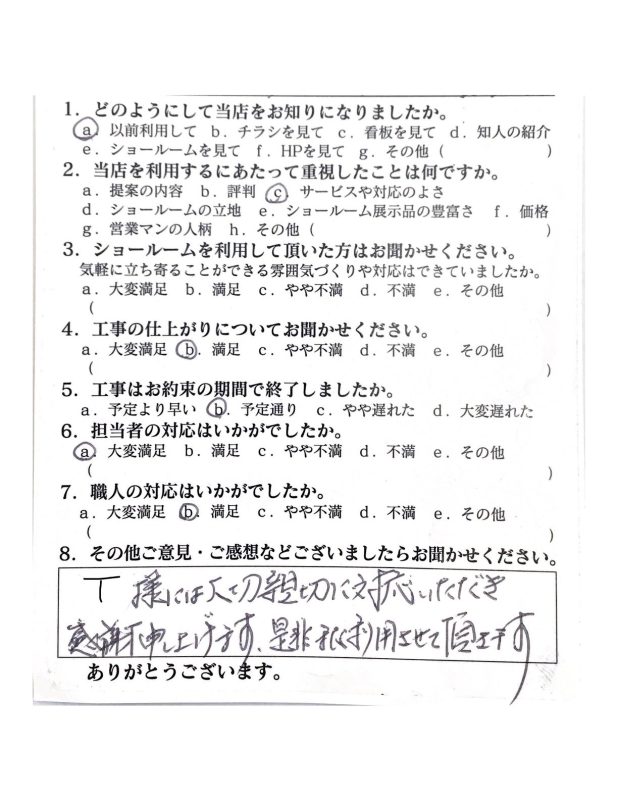 1. どのようにして当店をお知りになりましたか。
a 以前利用して b. チラシを見て c. 看板を見て d. 知人の紹介
e. ショールームを見て f. HPを見て g. その他 ( )
2. 当店を利用するにあたって重視したことは何ですか。
a. 提案の内容 b. 評判 c サービスや対応のよさ
d. ショールームの立地 e. ショールーム展示品の豊富さ f. 価格
g. 営業マンの人柄 h. その他 ( )
3. ショールームを利用して頂いた方はお聞かせください。
気軽に立ち寄ることができる雰囲気づくりや対応はできていましたか。
a. 大変満足 b. 満足 c. やや不満 d. 不満 e. その他
( )
4. 工事の仕上がりについてお聞かせください。
a. 大変満足 b. 満足 c. やや不満 d. 不満 e. その他
( )
5. 工事はお約束の期間で終了しましたか。
a. 予定より早い b. 予定通り c. やや遅れた d. 大変遅れた
6. 担当者の対応はいかがでしたか。
a. 大変満足 b. 満足 c. やや不満 d. 不満 e. その他
( )
7. 職人の対応はいかがでしたか。
a. 大変満足 b. 満足 c. やや不満 d. 不満 e. その他
( )
8. その他ご意見・ご感想などございましたらお聞かせください。
T 様には大切親切に対応いただき
感謝申し上げます、是非 利用させて頂きます
ありがとうございます。